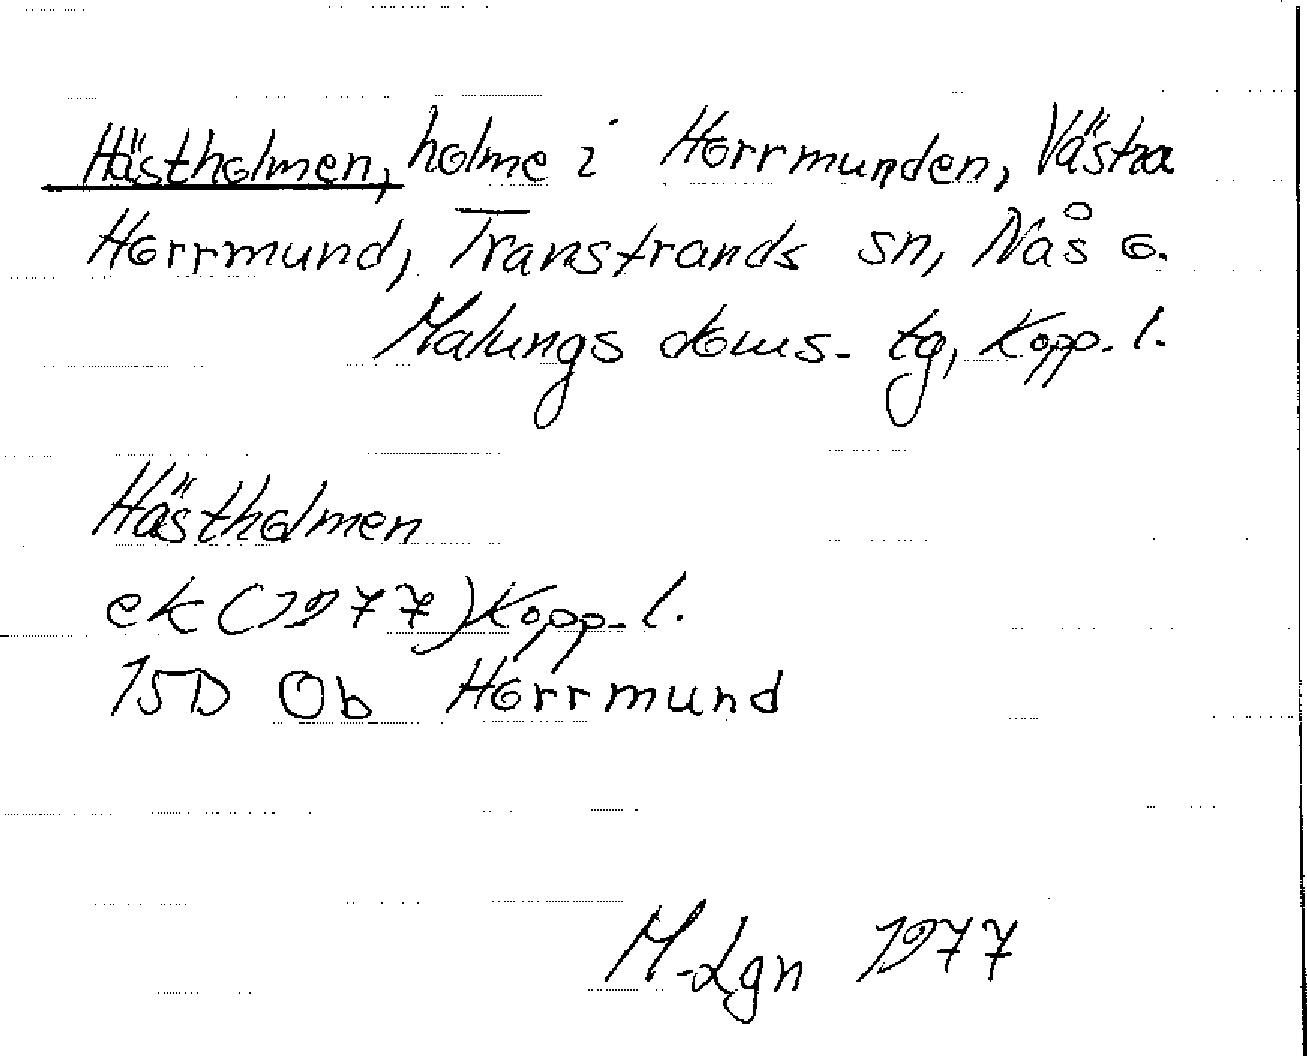 Hästholmen, holme i Horrmunden, Västra
Horrmund, Transtrands sn, Nås o.
Malungs doms. tg, Kopp. l.
Hästholmen
ek (1977) Kopp. l.
15D Ob Horrmund
M-Lgn 1977